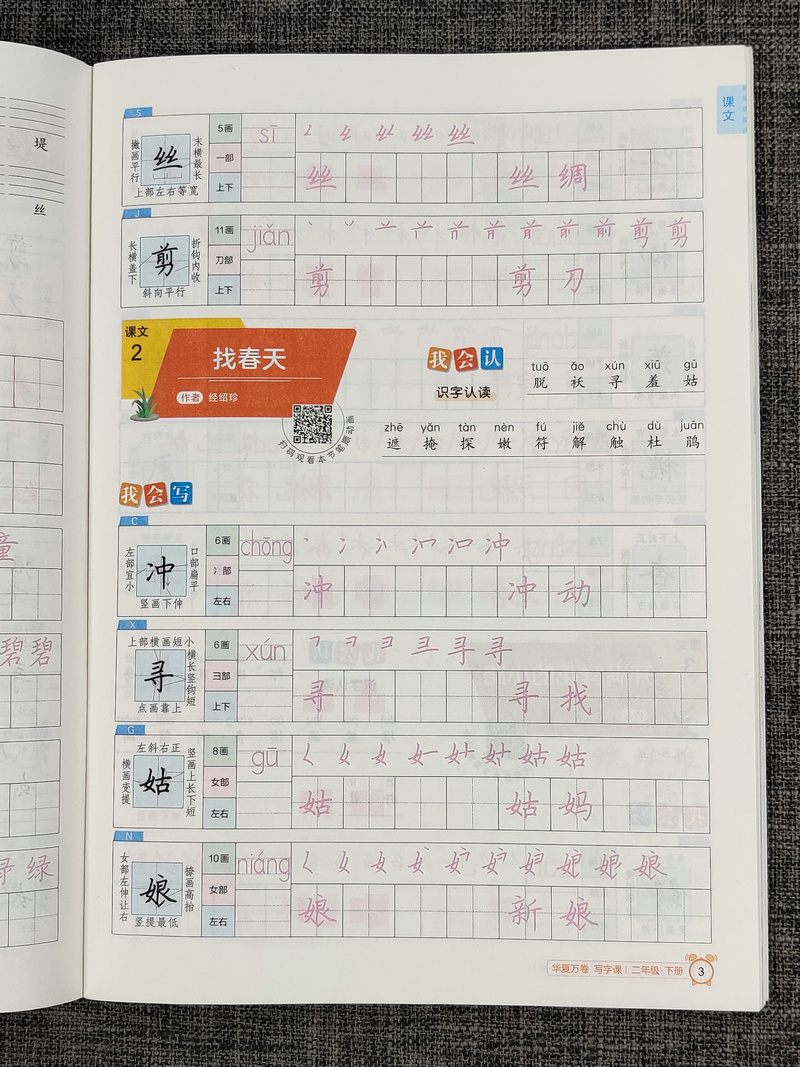 堤
丝
童
碧碧
绿绿
课文
S
撇画平行
丝
末横最长
上部左右等宽
5画
一部
上下
sī
丝 丝绸
J
长横盖下
剪
折钩内收
斜向平行
11画
刀部
上下
jiǎn
剪 剪
剪 剪刀
课文
2
找春天
作者 经绍珍
扫码观看本书笔顺动画
我会认
识字认读
tuō ǎo xún xiū gū
脱 袄 寻 羞 姑
zhē yǎn tàn nèn fú jiě chù dù juān
遮 掩 探 嫩 符 解 触 杜 鹃
我会写
C
左部宜小
冲
口部扁平
竖画下伸
6画
冫部
左右
chōng
冲
冲 冲动
X
上部横画短小
寻
横长竖钩短
点画靠上
6画
彐部
上下
xún
寻 寻
寻 寻找
G
左斜右正
横画变提
姑
竖画上长下短
8画
女部
左右
gū
姑 姑
姑 姑妈
N
女部左伸让右
娘
捺画高抬
竖提最低
10画
女部
左右
niáng
娘
娘 新娘
华夏万卷 写字课 | 二年级·下册 3